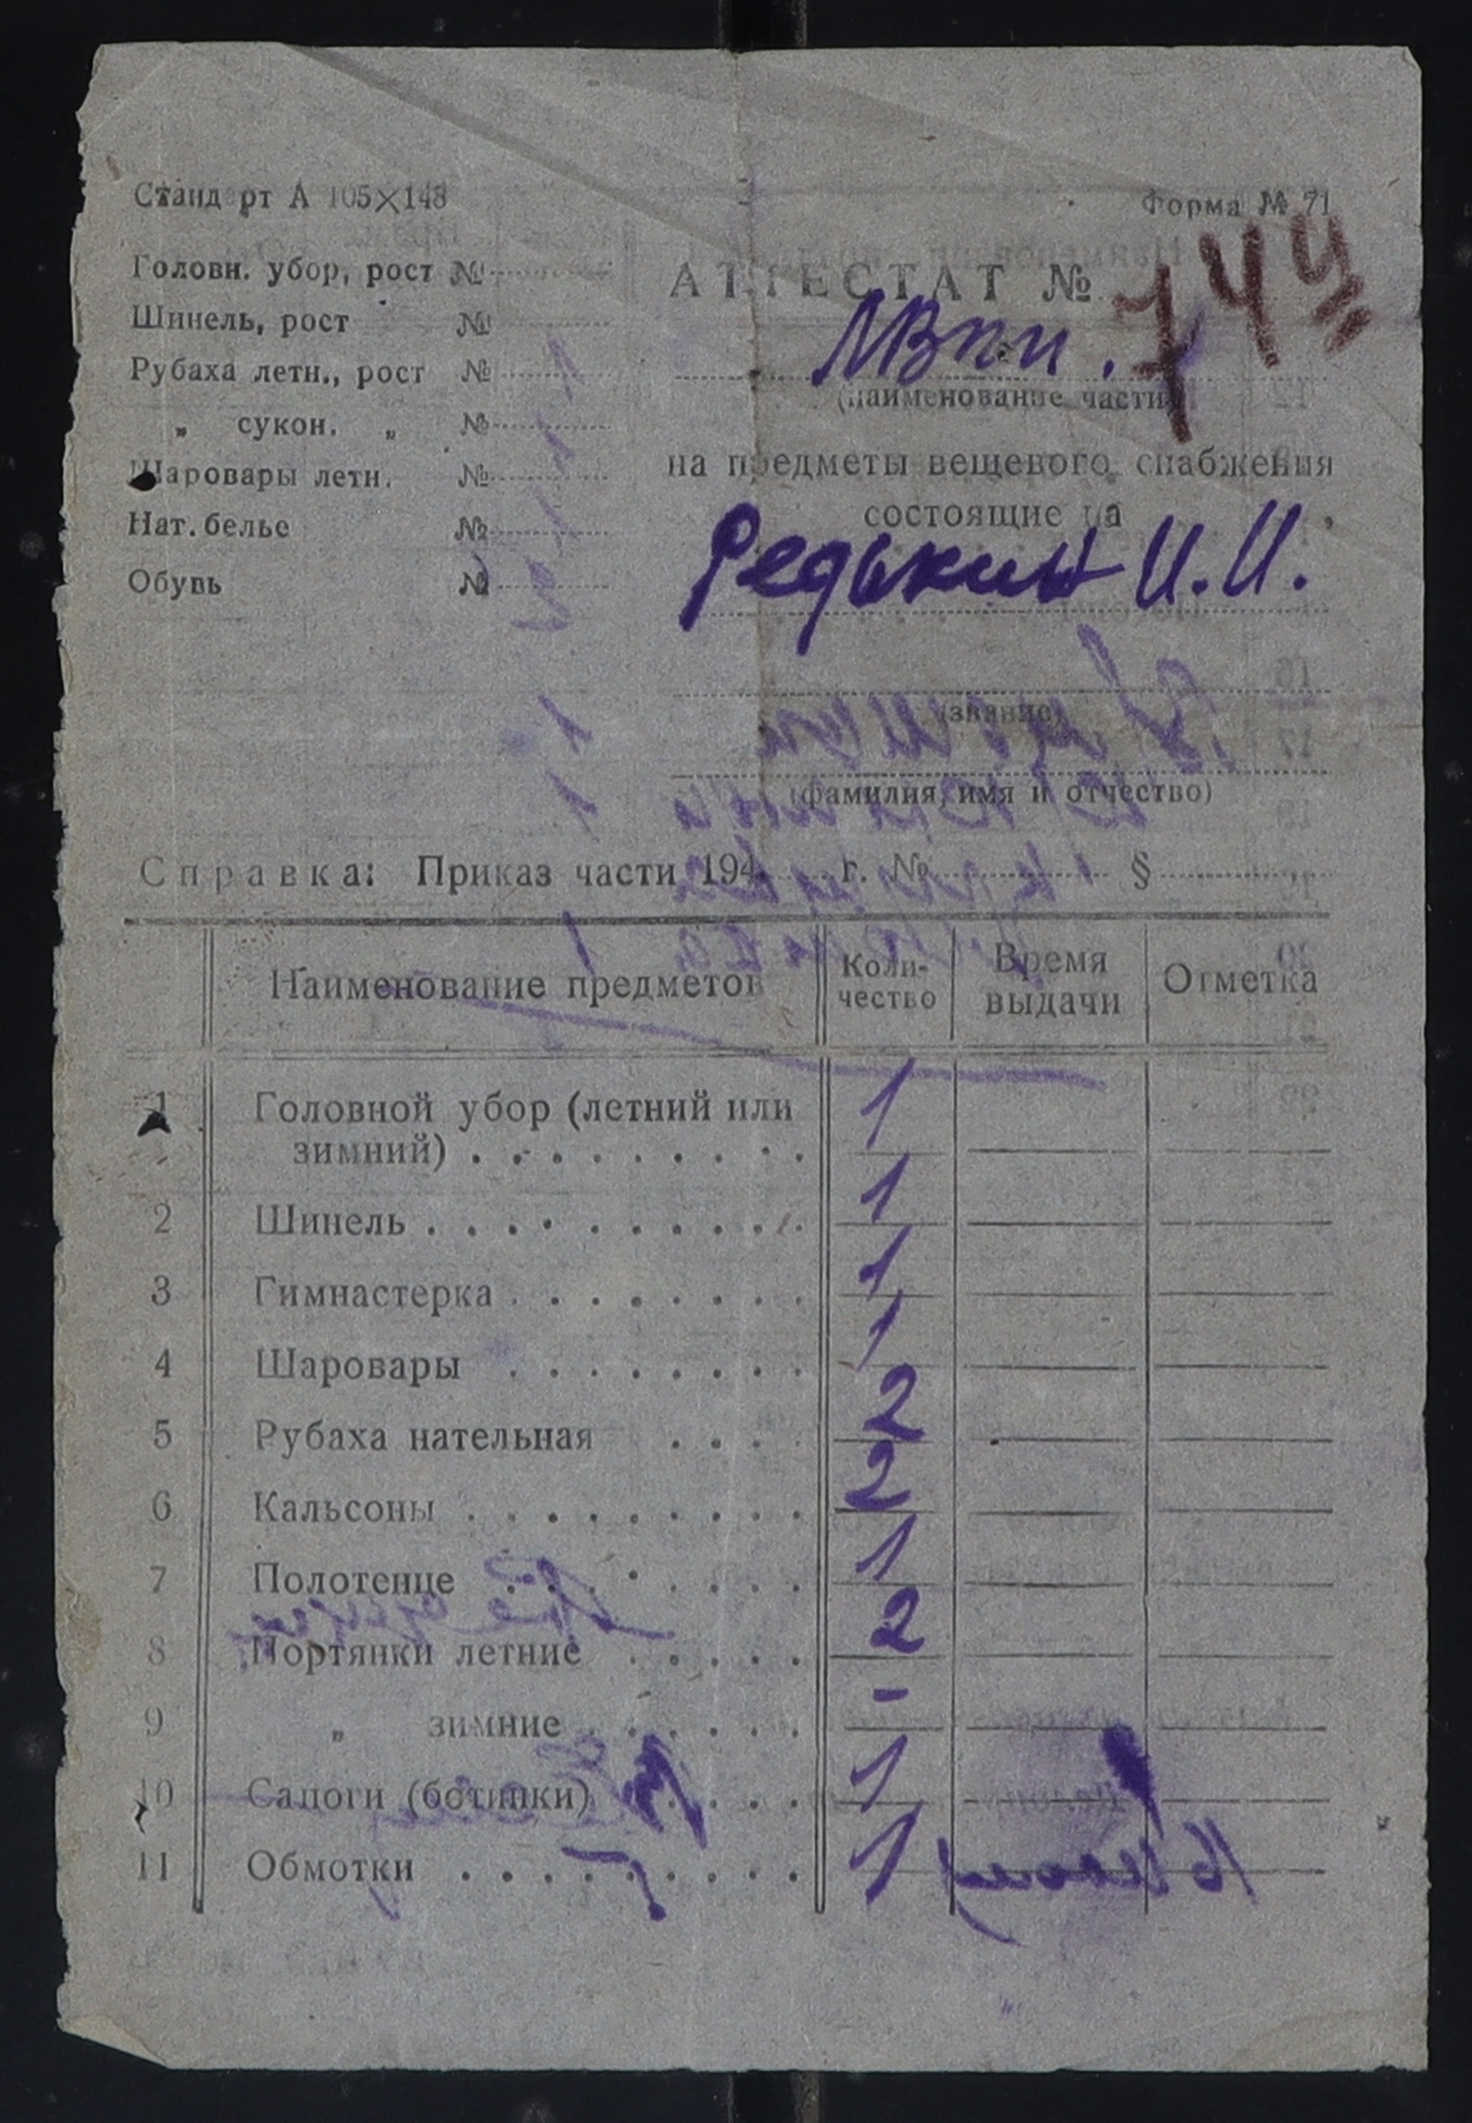 Стандарт А 105×148
Форма № 71
Головн. убор, рост №
Шинель, рост №
Рубаха летн., рост №
„ сукон. „ №
Шаровары летн. №
Нат. белье №
Обувь №
АТТЕСТАТ № 744
МВПИ.
(наименование части)
на предметы вещевого снабжения
состоящие на
Редькин И. И.
(звание)
(фамилия, имя и отчество)
Справка: Приказ части 194 г. № §
Наименование предметов Коли-чество Время выдачи Отметка
1 Головной убор (летний или
зимний) 1
2 Шинель 1
3 Гимнастерка 1
4 Шаровары 1
5 Рубаха нательная 2
6 Кальсоны 2
7 Полотенце 1
8 Портянки летние 2
9 „ зимние -
10 Сапоги (ботинки) 1
11 Обмотки 1